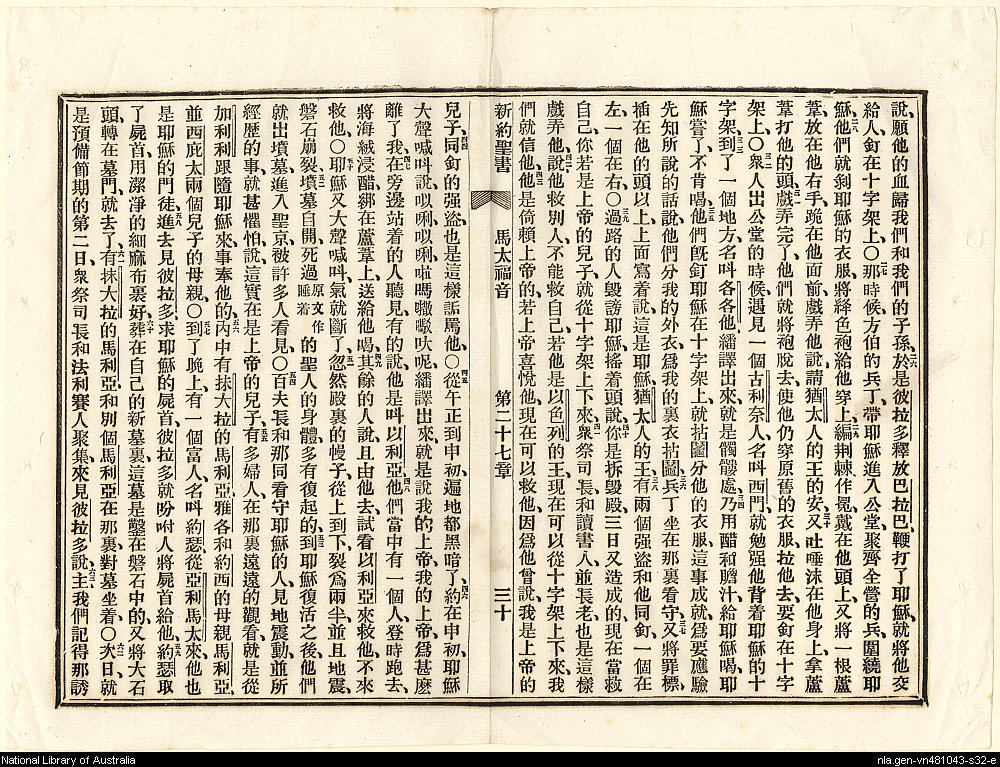 說、願他的血歸我們和我們的子孫、二六於是彼拉多釋放巴拉巴、鞭打了耶穌、就將他交
給人釘在十字架上、〇二七那時候方伯的兵丁、帶耶穌進入公堂、聚齊全營的兵圍繞耶
穌、二八他們就剥耶穌的衣服、將絳色袍給他穿上、二九編荆棘作冕戴在他頭上、又將一根蘆
葦放在他右手、跪在他面前戲弄他說、請猶太人的王的安、三十又吐唾沫在他身上、拿蘆
葦打他的頭、三一戲弄完了、他們就將袍脫去、使他仍穿原舊的衣服、拉他去要釘在十字
架上、〇三二衆人出公堂的時候、遇見一個古利奈人、名叫西門、就勉强他背着耶穌的十
字架、三三到了一個地方、名叫各各他、繙譯出來就是髑髏處、三四乃用醋和膽汁給耶穌喝、耶
穌嘗了、不肯喝、三五他們旣釘耶穌在十字架上、就拈鬮分他的衣服、這事成就、爲要應驗
先知所說的話說、他們分我的外衣、爲我的裏衣拈鬮、三六兵丁坐在那裏看守、三七又將罪標
插在他的頭以上、上面寫着說、這是耶穌猶太人的王、三八有兩個强盜和他同釘、一個在
左、一個在右、〇三九過路的人毀謗耶穌、搖着頭說、四十你是拆毀殿、三日又造成的、現在當救
自己、你若是上帝的兒子、就從十字架上下來、四一衆祭司長和讀書人、並長老、也是這樣
戲弄他說、四二他救別人、不能救自己、若他是以色列的王、現在可以從十字架上下來、我
們就信他、四三他是倚賴上帝的、若上帝喜悅他、現在可以救他、因爲他曾說、我是上帝的
新約聖書 馬太福音 第二十七章 三十
兒子、四四同釘的强盜也是這樣詬罵他、〇四五從午正到申初、遍地都黑暗了、四六約在申初、耶穌
大聲喊叫說、以唎、以唎、啦嗎嘞噉呔呢、繙譯出來、就是說我的上帝、我的上帝、爲甚麽
離了我、四七在旁邊站着的人聽見、有的說他是叫以利亞、四八他們當中有一個人登時跑去、
將海絨浸醋、綁在蘆葦上、送給他喝、四九其餘的人說、且由他去、試看以利亞來救他不來
救他、〇五十耶穌又大聲喊叫、氣就斷了、五一忽然殿裏的幔子從上到下裂爲兩半、並且地震
磐石崩裂、五二墳墓自開、死過原文作睡着的聖人的身體、多有復起的、五三到耶穌復活之後、他們
就出墳墓、進入聖京、被許多人看見、〇五四百夫長和那同看守耶穌的人、見地震動、並所
經歷的事、就甚懼怕、說、這實在是上帝的兒子、五五有多婦人在那裏遠遠的觀看、就是從
加利利跟隨耶穌來事奉他的、五六內中有抹大拉的馬利亞、雅各和約西的母親馬利亞、
並西庇太兩個兒子的母親、〇五七到了晚上、有一個富人、名叫約瑟、從亞利馬太來、他也
是耶穌的門徒、五八進去見彼拉多求耶穌的屍首、彼拉多就吩咐人將屍首給他、五九約瑟取
了屍首、用潔淨的細麻布裏好、六十葬在自己的新墓裏、這墓是鑿在磐石中的、又將大石
頭、轉在墓門、就去了、六一有抹大拉的馬利亞、和別個馬利亞在那裏、對墓坐着、〇六二次日、就
是預備節期的第二日、衆祭司長和法利賽人聚集、來見彼拉多說、六三主、我們記得那誘
National Library of Australia
nla.gen-vn481043-s32-e